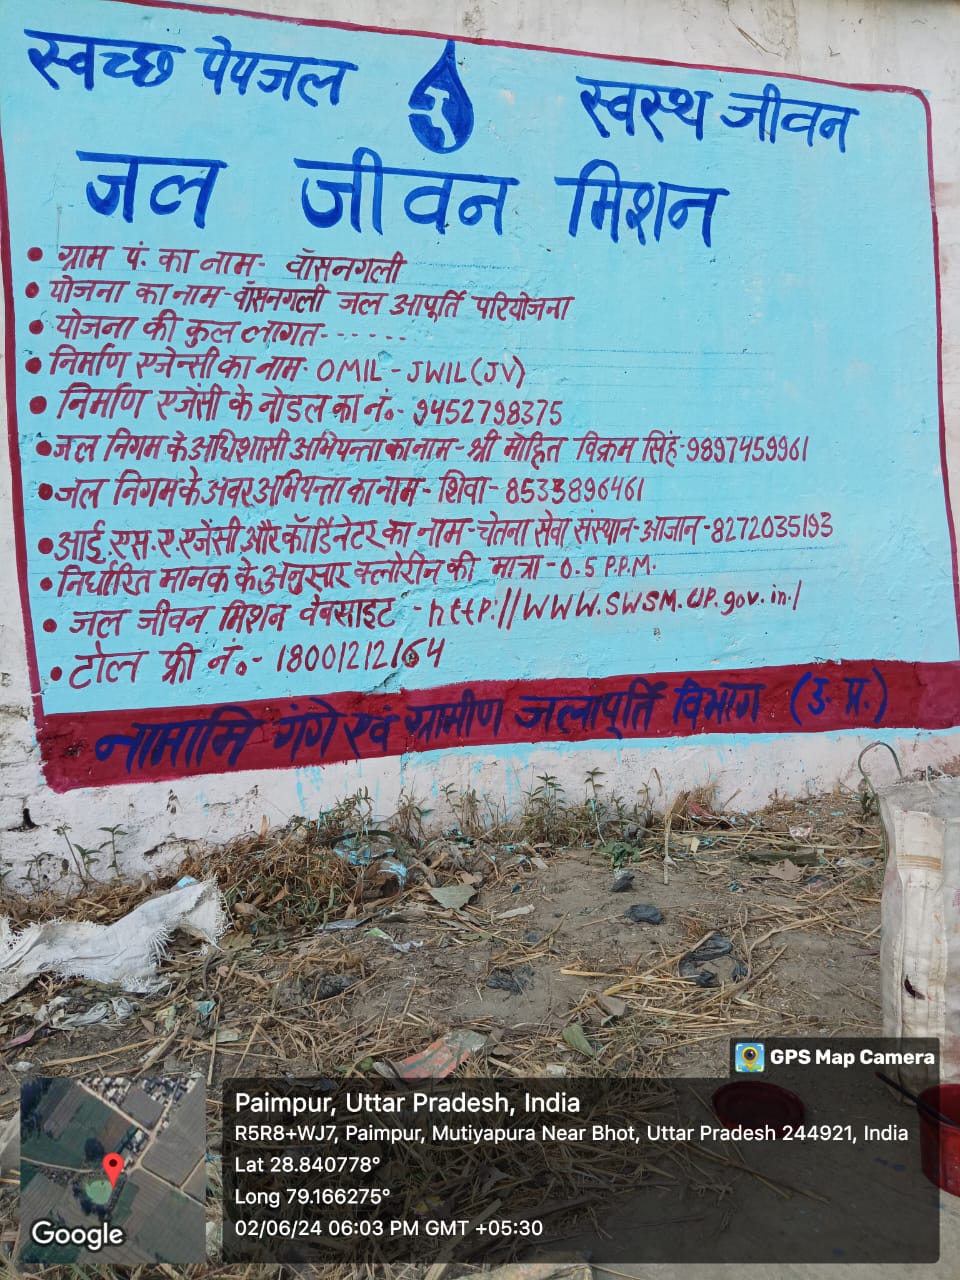 स्वच्छ पेयजल स्वस्थ जीवन
जल जीवन मिशन
• ग्राम पं. का नाम- वॉसनगली
• योजना का नाम-वॉसनगली जल आपूर्ति परियोजना
• योजना की कुल लागत- - - - - -
• निर्माण एजेन्सी का नाम- OMIL - JWIL (JV)
• निर्माण एजेंसी के नोडल का नं०- 9452798375
• जल निगम के अधिशासी अभियन्ता का नाम- श्री मोहित विक्रम सिंह-9897459961
• जल निगम के अवर अभियन्ता का नाम- शिवा- 8533896461
• आई.एस.ए.एजेंसी और कॉर्डिनेटर का नाम-चेतना सेवा संस्थान-आजान-8272035193
• निर्धारित मानक के अनुसार क्लोरीन की मात्रा-0.5 P.P.M.
• जल जीवन मिशन वेबसाइट - http://WWW.SWSM.UP.gov.in./
• टोल फ्री नं०- 18001212164
नामामि गंगे एवं ग्रामीण जलापूर्ति विभाग (उ. प्र.)
GPS Map Camera
Paimpur, Uttar Pradesh, India
R5R8+WJ7, Paimpur, Mutiyapura Near Bhot, Uttar Pradesh 244921, India
Lat 28.840778°
Long 79.166275°
02/06/24 06:03 PM GMT +05:30
Google